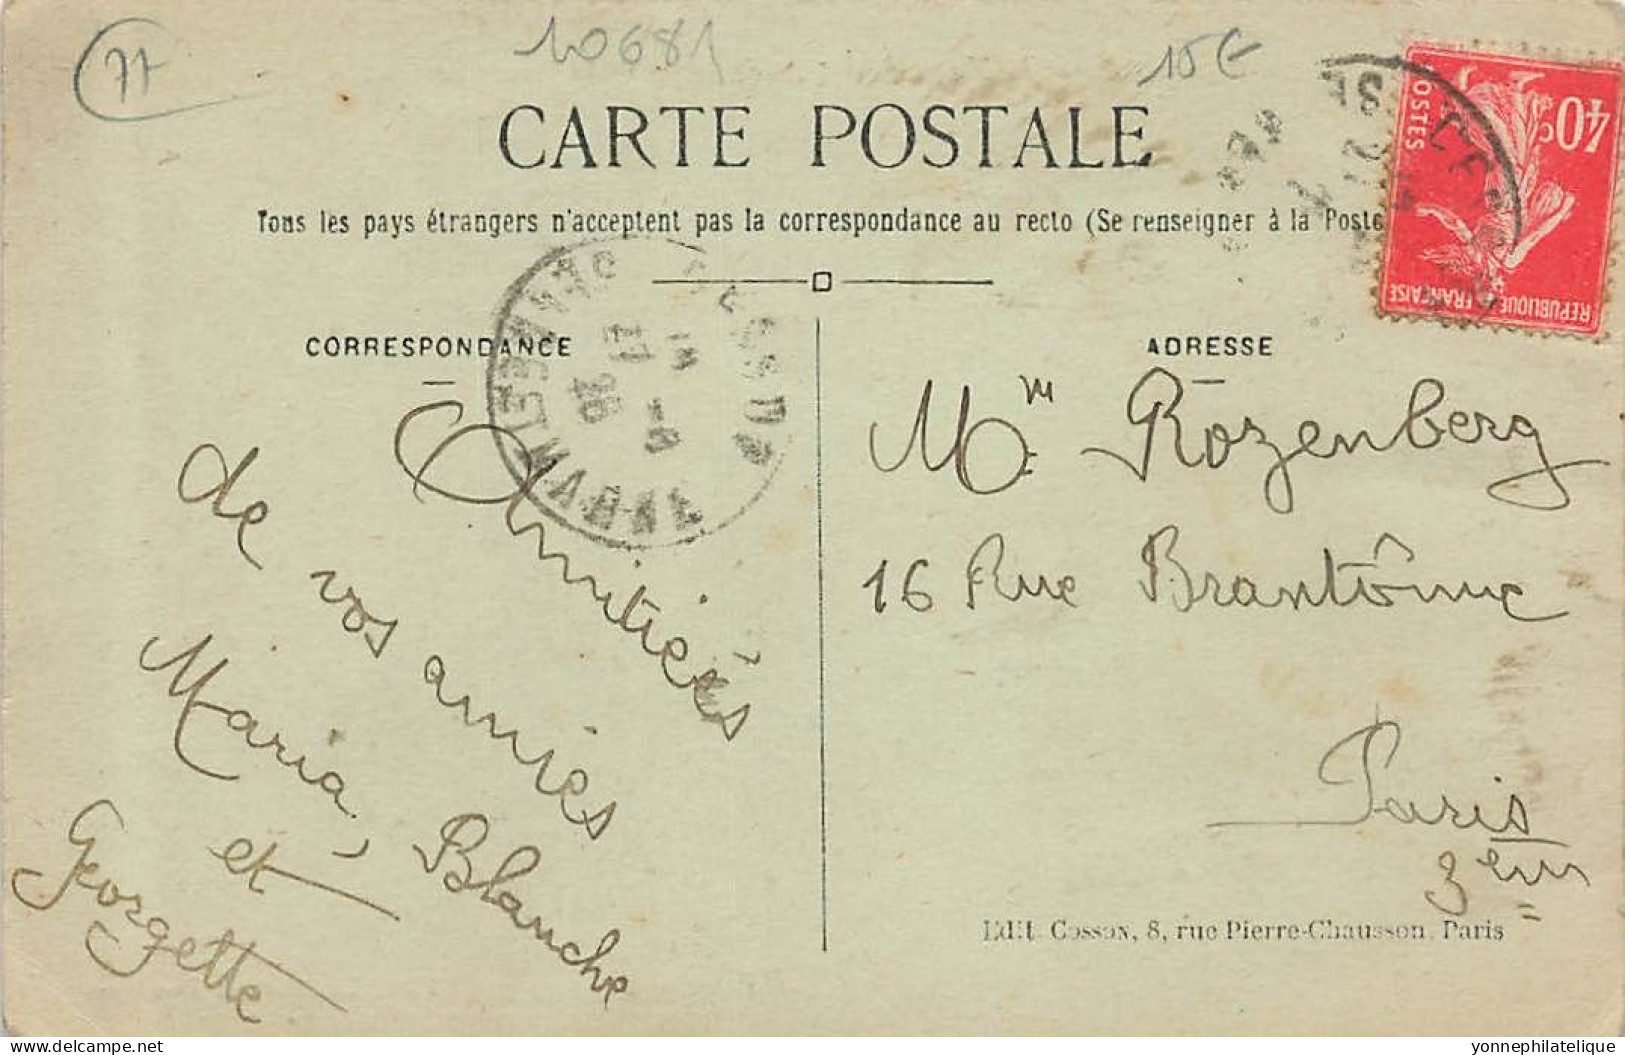 77
10681
15€
CARTE POSTALE
Tous les pays étrangers n'acceptent pas la correspondance au recto (Se renseigner à la Poste
40c
POSTES
REPUBLIQUE FRANÇAISE
CORRESPONDANCE
Amitiés
de vos amies
Maria, Blanche
et
Georgette
SEINE-ET-MARNE
ADRESSE
Mm Rozenberg
16 Rue Brantôme
Paris
3em
Edit. Cossox, 8, rue Pierre-Chausson, Paris
yonnephilatelique
delcampe.net